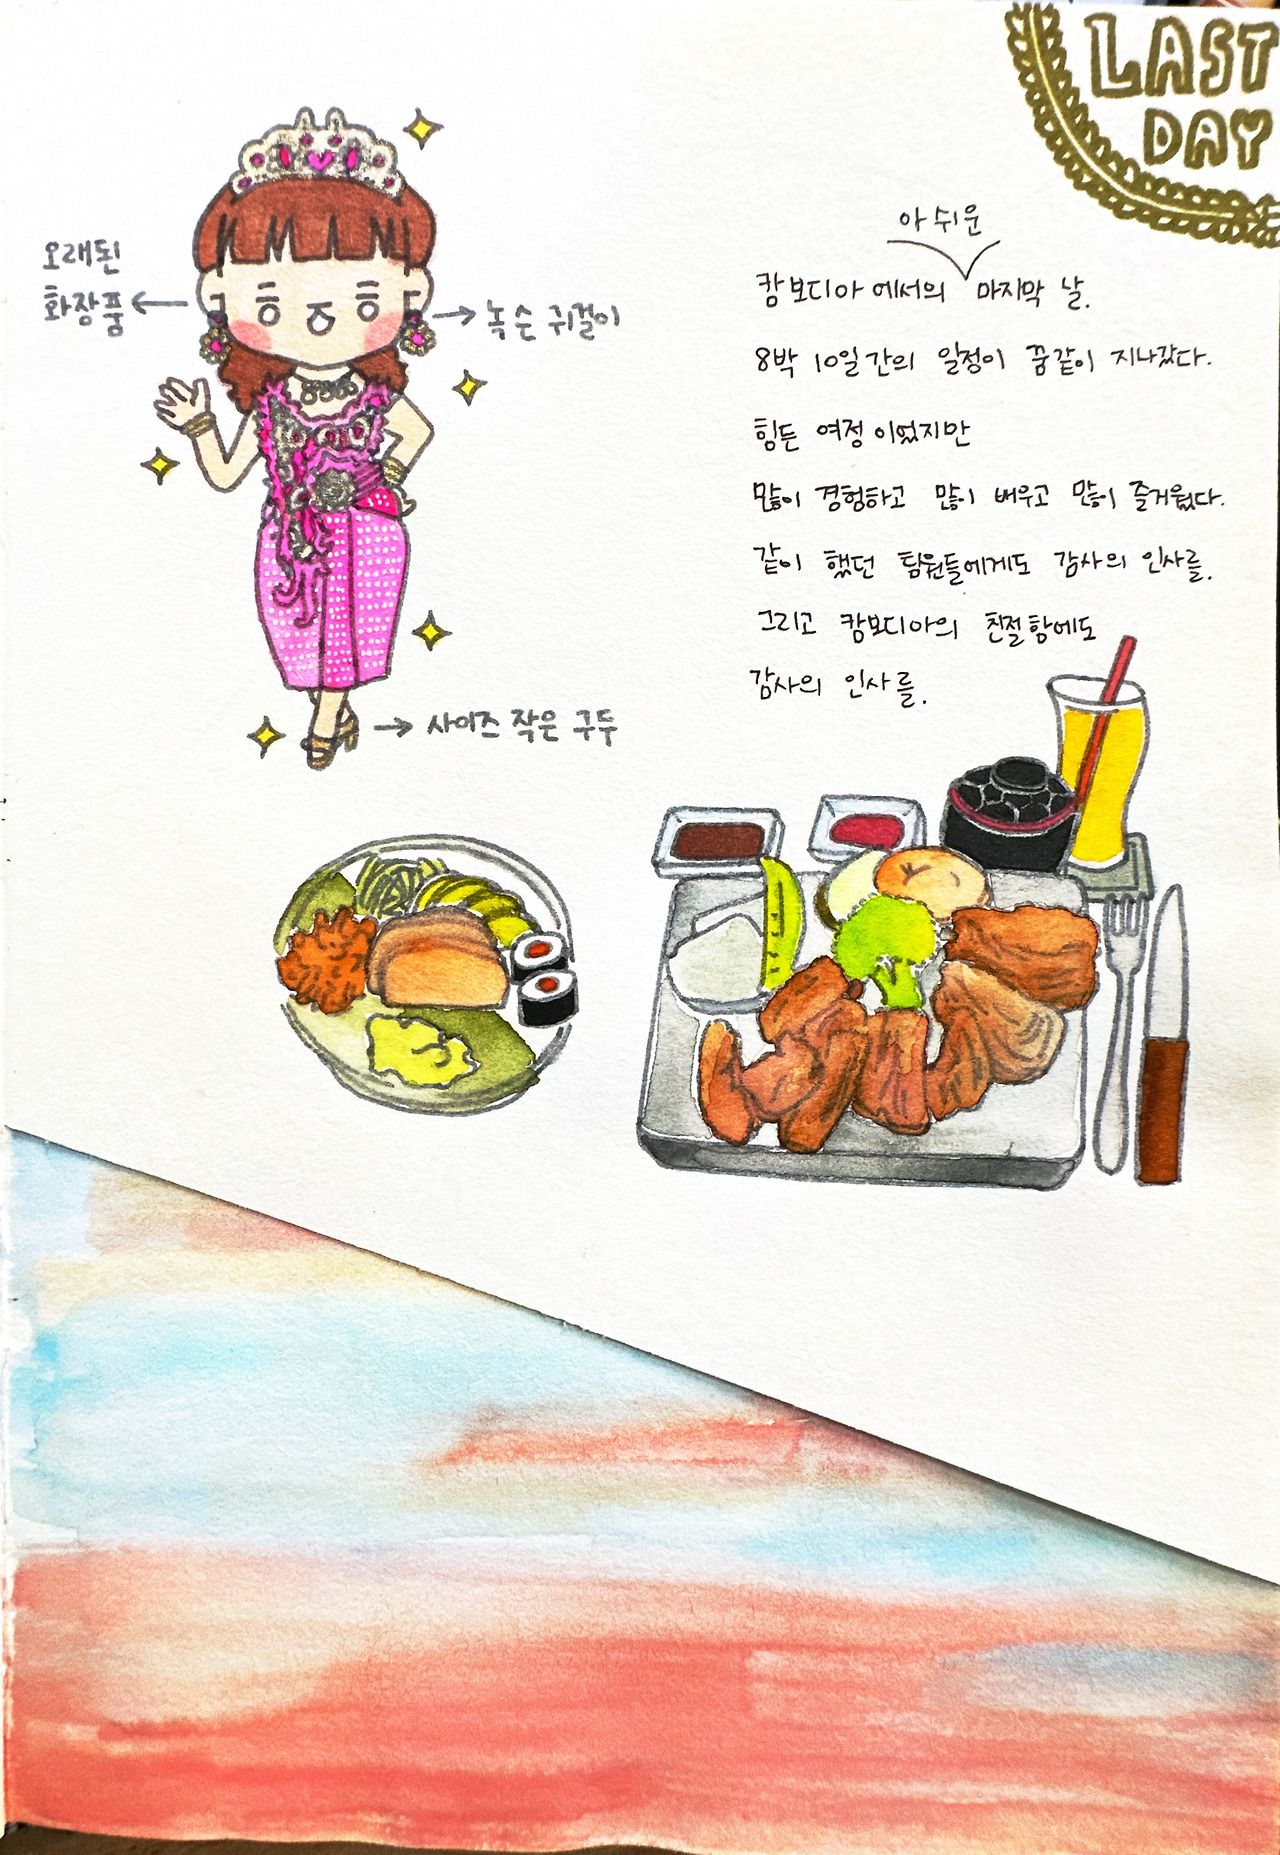 LAST
DAY
오래된
화장품
녹슨 귀걸이
사이즈 작은 구두
아쉬운
캄보디아에서의 마지막 날.
8박 10일간의 일정이 꿈같이 지나갔다.
힘든 여정이었지만
많이 경험하고 많이 배우고 많이 즐거웠다.
같이 했던 팀원들에게도 감사의 인사를.
그리고 캄보디아의 친절함에도
감사의 인사를.